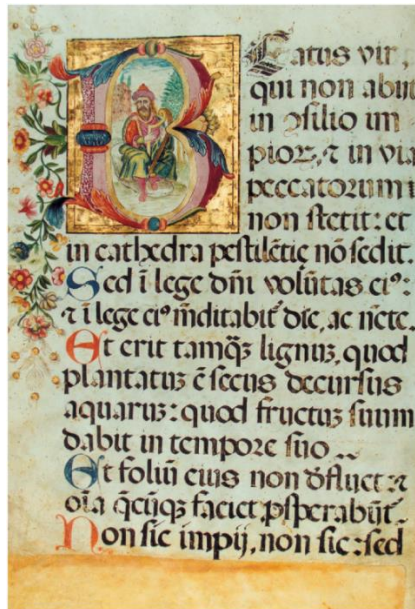 Beatus vir,
qui non abiit
in ꝯsilio im
pioꝝ, ⁊ in via
peccatorum
non stetit: et
in cathedra pestilētie nō sedit.
Sed ī lege dn̄i volūtas eiꝰ:
⁊ ī lege eiꝰ mēditabit̄ die, ac nc̄te.
Et erit tamqꝫ lignuꝫ, quod
plantatuꝫ ē secus decursus
aquaruꝫ: quod fructuꝫ suum
dabit in tempore suo
Et foliū eius non dꝭfluet: ⁊
oīa qcūqꝫ faciet ꝓsperabūt̄.
Non sic impij, non sic: sed